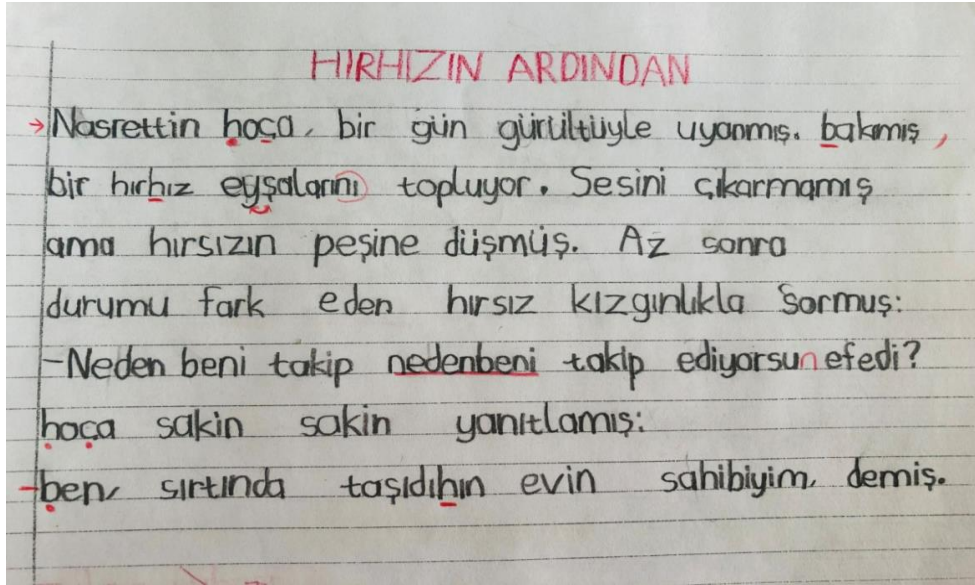 HIRHIZIN ARDINDAN
→Nasrettin hoça, bir gün gürültüyle uyanmış. bakmış,
bir hırhız eyşalarını topluyor. Sesini çıkarmamış
ama hırsızın peşine düşmüş. Az sonra
durumu fark eden hırsız kızgınlıkla sormuş:
-Neden beni takip nedenbeni takip ediyorsun efedi?
hoça sakin sakin yanıtlamış:
-ben, sırtında taşıdıhın evin sahibiyim, demiş.